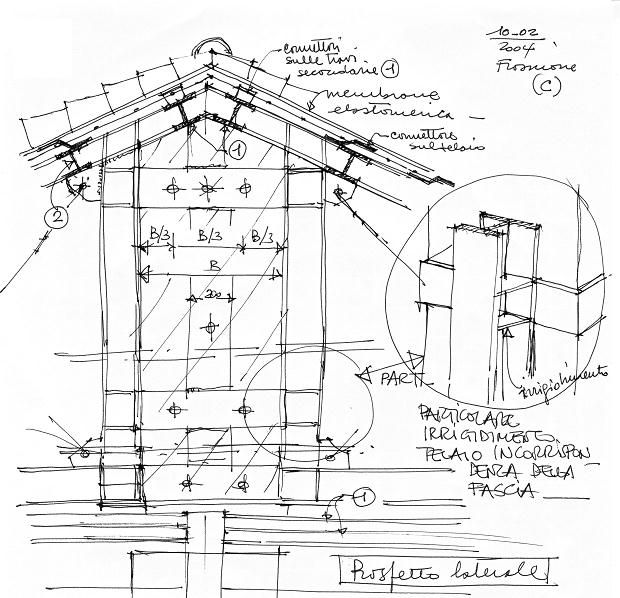 10-02
2004
Frosinone
(C)
connettori
sulle travi
secondarie 1
membrana
elastomerica
connettore
sul telaio
1
2
B/3 B/3 B/3
B
200
PART.
irrigidimento
PARTICOLARE
IRRIGIDIMENTO
TELAIO IN CORRISPON
DENZA DELLA
FASCIA
1
Prospetto laterale